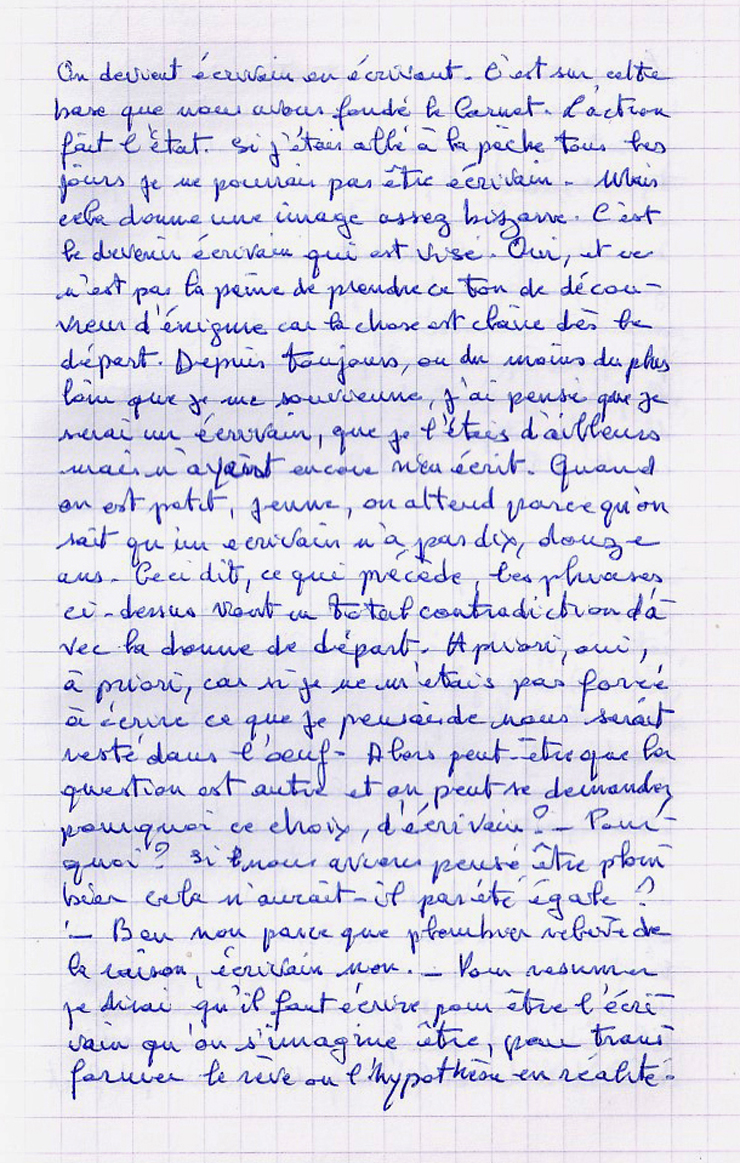 On devient écrivain en écrivant. C'est sur cette
base que nous avons fondé le Carnet. L'action
fait l'état. Si j'étais allé à la pêche tous les
jours je ne pourrais pas être écrivain. Mais
cela donne une image assez bizarre. C'est
le devenir écrivain qui est visé. Oui, et ce
n'est pas la peine de prendre ce ton de décou-
vreur d'énigme car la chose est claire dès le
départ. Depuis toujours, ou du moins du plus
loin que je me souvienne, j'ai pensé que je
serai un écrivain, que je l'étais d'ailleurs
mais n'ayant encore rien écrit. Quand
on est petit, jeune, on attend parce qu'on
sait qu'un écrivain n'a pas dix, douze
ans. Ceci dit, ce qui précède, les phrases
ci-dessus vont en total contradiction d'a
vec la donne de départ. A priori, oui,
à priori, car si je ne m'étais pas forcé
à écrire ce que je pensais de nous serait
resté dans l'oeuf. Alors peut-être que la
question est autre et on peut se demander
pourquoi ce choix, d'écrivain? - Pour-
quoi? Si nous avions pensé être plom
bier cela n'aurait-il pas été égale?
- Ben non parce que plombier relève de
la raison, écrivain non. - Pour resumer
je dirai qu'il faut écrire pour être l'écri-
vain qu'on s'imagine être, pour trans
former le rêve ou l'hypothèse en réalité.